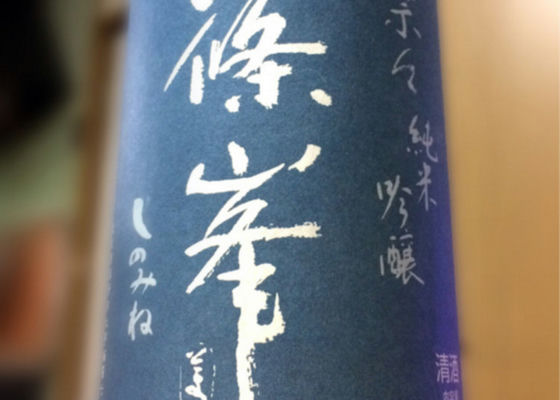 篠峯
しのみね
純米
吟醸
清酒